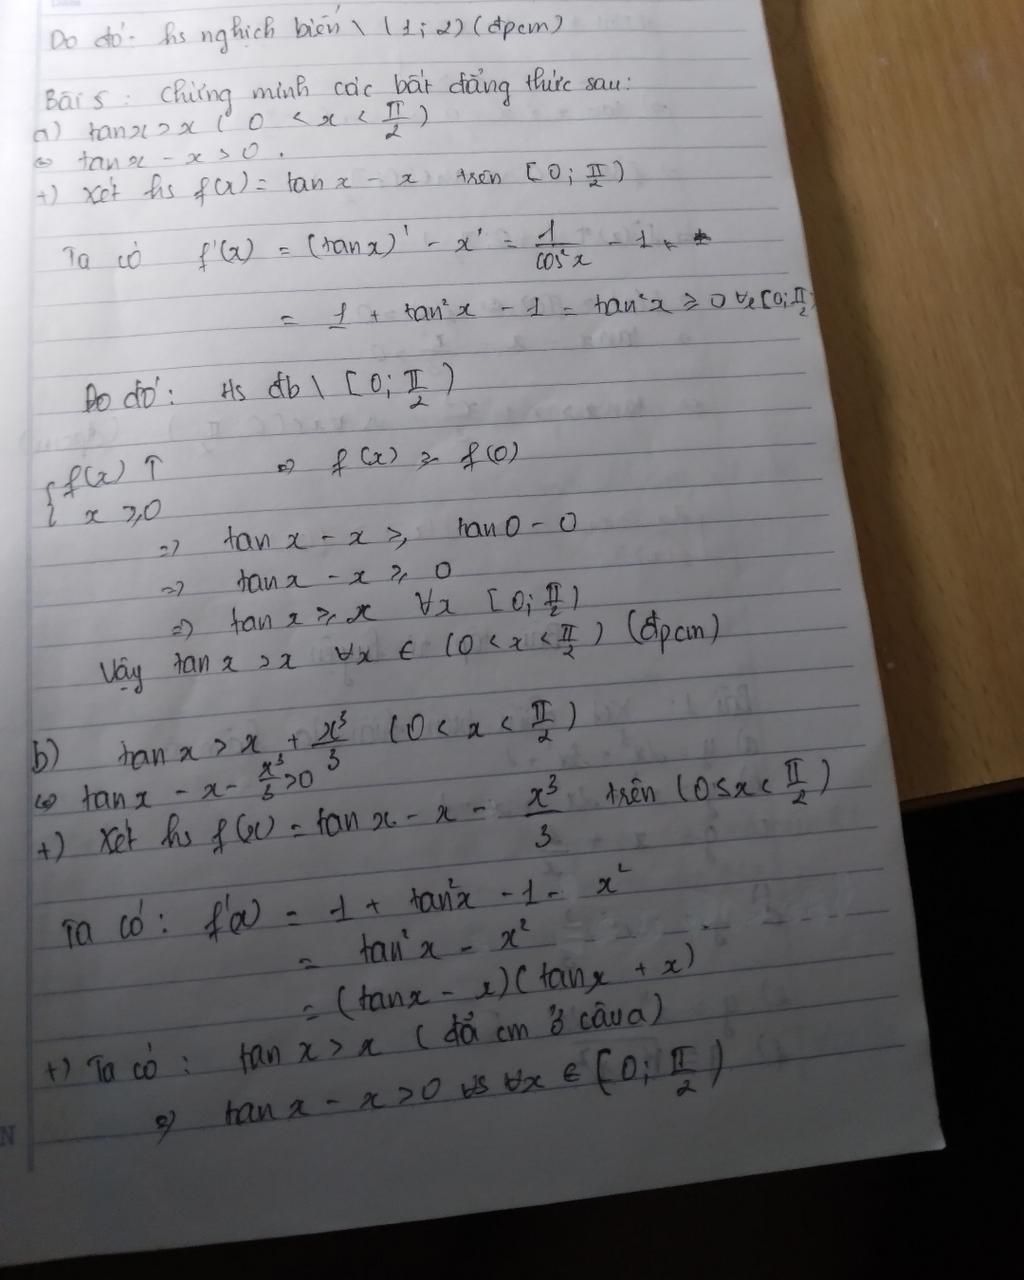 Do đó: hs nghịch biến \ (1; 2) (đpcm)
Bài 5: Chứng minh các bất đẳng thức sau:
a) tanx > x ( 0 < x < π/2 )
⇔ tanx - x > 0.
+) Xét hs f(x) = tan x - x trên [0; π/2)
Ta có f'(x) = (tanx)' - x' = 1/cos²x - 1
= 1 + tan²x - 1 = tan²x ≥ 0 ∀x [0; π/2)
Do đó: Hs đb \ [0; π/2)
{ f(x) ↑ ⇒ f(x) ≥ f(0)
x ≥ 0
⇒ tan x - x ≥ tan0 - 0
⇒ tanx - x ≥ 0
⇒ tan x ≥ x ∀x [0; π/2)
Vậy tanx > x ∀x ∈ (0 < x < π/2) (đpcm)
b) tan x > x + x³/3 (0 < x < π/2)
⇔ tanx - x - x³/3 > 0
+) Xét hs f(x) = tan x - x - x³/3 trên (0 ≤ x < π/2)
Ta có: f'(x) = 1 + tan²x - 1 - x²
= tan²x - x²
= (tanx - x)(tanx + x)
+) Ta có: tan x > x (đã cm ở câu a)
⇒ tan x - x > 0 ∀x ∈ [0; π/2)
N